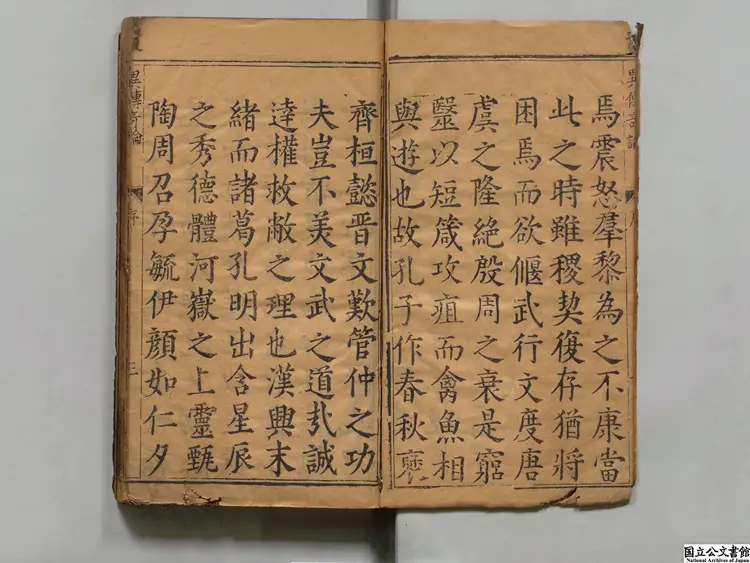 焉震怒羣黎為之不康當
此之時雖稷契復存猶將
困焉而欲偃武行文度唐
虞之隆絶殷周之衰是窮
毉以短箴攻疽而禽魚相
與遊也故孔子作春秋襃
齊桓懿晋文歎管仲之功
夫豈不美文武之道㢤誠
達權救敝之理也漢興末
緒而諸葛孔明出含星辰
之秀德體河嶽之上靈甄
陶周召孕毓伊顏如仁夕
序
三
国立公文書館
National Archives of Japan